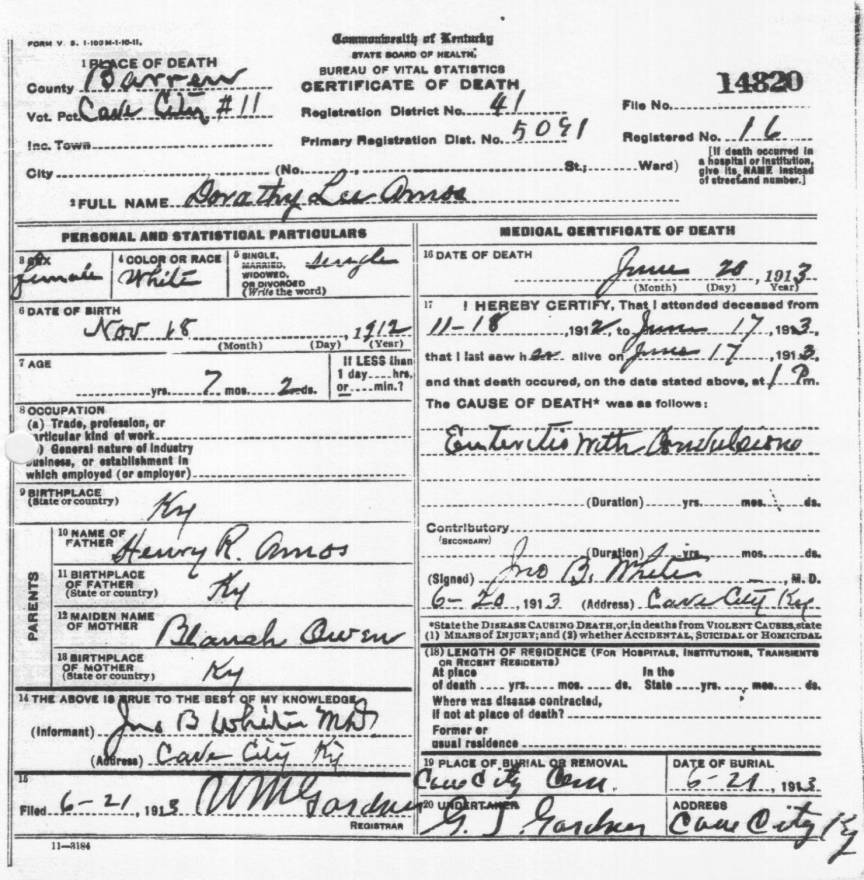 FORM V. S. 1-100M-1-10-11.
Commonwealth of Kentucky
STATE BOARD OF HEALTH,
BUREAU OF VITAL STATISTICS
CERTIFICATE OF DEATH
14820
1 PLACE OF DEATH
County Barren
Vot. Pct. Cave City #11
Inc. Town
Registration District No. 41
Primary Registration Dist. No. 5091
File No.
Registered No. 16
[If death occurred in
a hospital or institution,
give its NAME instead
of street and number.]
City (No. , St.; Ward)
2 FULL NAME Dorathy Lee Amos
PERSONAL AND STATISTICAL PARTICULARS
3 SEX
female
4 COLOR OR RACE
White
5 SINGLE,
MARRIED,
WIDOWED,
OR DIVORCED
(Write the word)
single
6 DATE OF BIRTH
Nov 18, 1912
(Month) (Day) (Year)
7 AGE
yrs. 7 mos. 2 ds.
If LESS than
1 day....hrs.
or....min.?
8 OCCUPATION
(a) Trade, profession, or
particular kind of work
(b) General nature of industry
business, or establishment in
which employed (or employer)
9 BIRTHPLACE
(State or country)
Ky
PARENTS
10 NAME OF
FATHER
Henry R. Amos
11 BIRTHPLACE
OF FATHER
(State or country)
Ky
12 MAIDEN NAME
OF MOTHER
Blanah Owen
13 BIRTHPLACE
OF MOTHER
(State or country)
Ky
14 THE ABOVE IS TRUE TO THE BEST OF MY KNOWLEDGE
(Informant) Jno B White MD.
(Address) Cave City Ky
15
Filed 6-21, 1913 WM Gardner
REGISTRAR
11—3184
MEDICAL CERTIFICATE OF DEATH
16 DATE OF DEATH
June 20, 1913
(Month) (Day) Year)
17 I HEREBY CERTIFY, That I attended deceased from
11-18, 1912, to June 17, 1913,
that I last saw her alive on June 17, 1913,
and that death occured, on the date stated above, at 1 Pm.
The CAUSE OF DEATH* was as follows:
Enteritis with Convulsions
(Duration) yrs. mos. ds.
Contributory
(SECONDARY)
(Duration) yrs. mos. ds.
(Signed) Jno B. White, M. D.
6-20, 1913 (Address) Cave City Ky
*State the DISEASE CAUSING DEATH, or, in deaths from VIOLENT CAUSES, state
(1) MEANS OF INJURY; and (2) whether ACCIDENTAL, SUICIDAL or HOMICIDAL
(18) LENGTH OF RESIDENCE (FOR HOSPITALS, INSTITUTIONS, TRANSIENTS
OR RECENT RESIDENTS)
At place In the
of death .... yrs. mos. ds. State .... yrs. mos. ds.
Where was disease contracted,
if not at place of death?
Former or
usual residence
19 PLACE OF BURIAL OR REMOVAL
Cave City Cem.
DATE OF BURIAL
6-21, 1913
20 UNDERTAKER
G. T. Gardner
ADDRESS
Cave City Ky